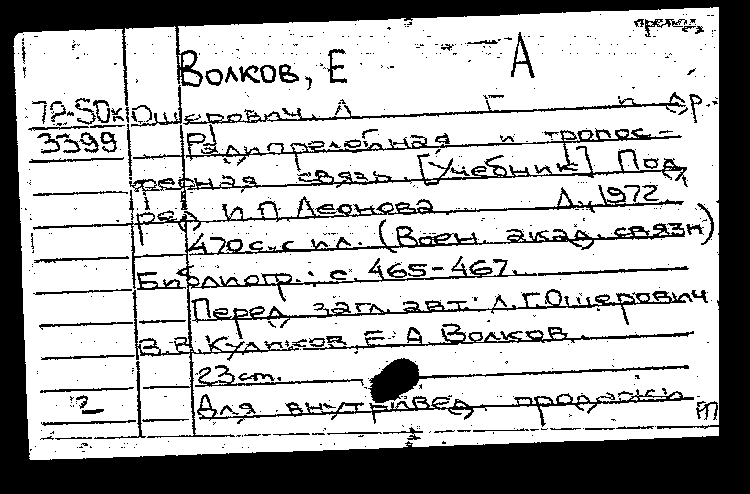 Волков, Е А
72-50к Ошерович, Л Г и др.
3399 Радиорелейная и тропос-
ферная связь. [Учебник] Под
ред И П Леонова Л., 1972.
470 с. с ил. (Воен. акад. связи)
Библиогр.: с. 465-467.
Перед загл. авт.: Л. Г. Ошерович,
В. В. Куликов, Е. А Волков.
23 ст.
2 Для внутривед. продажи